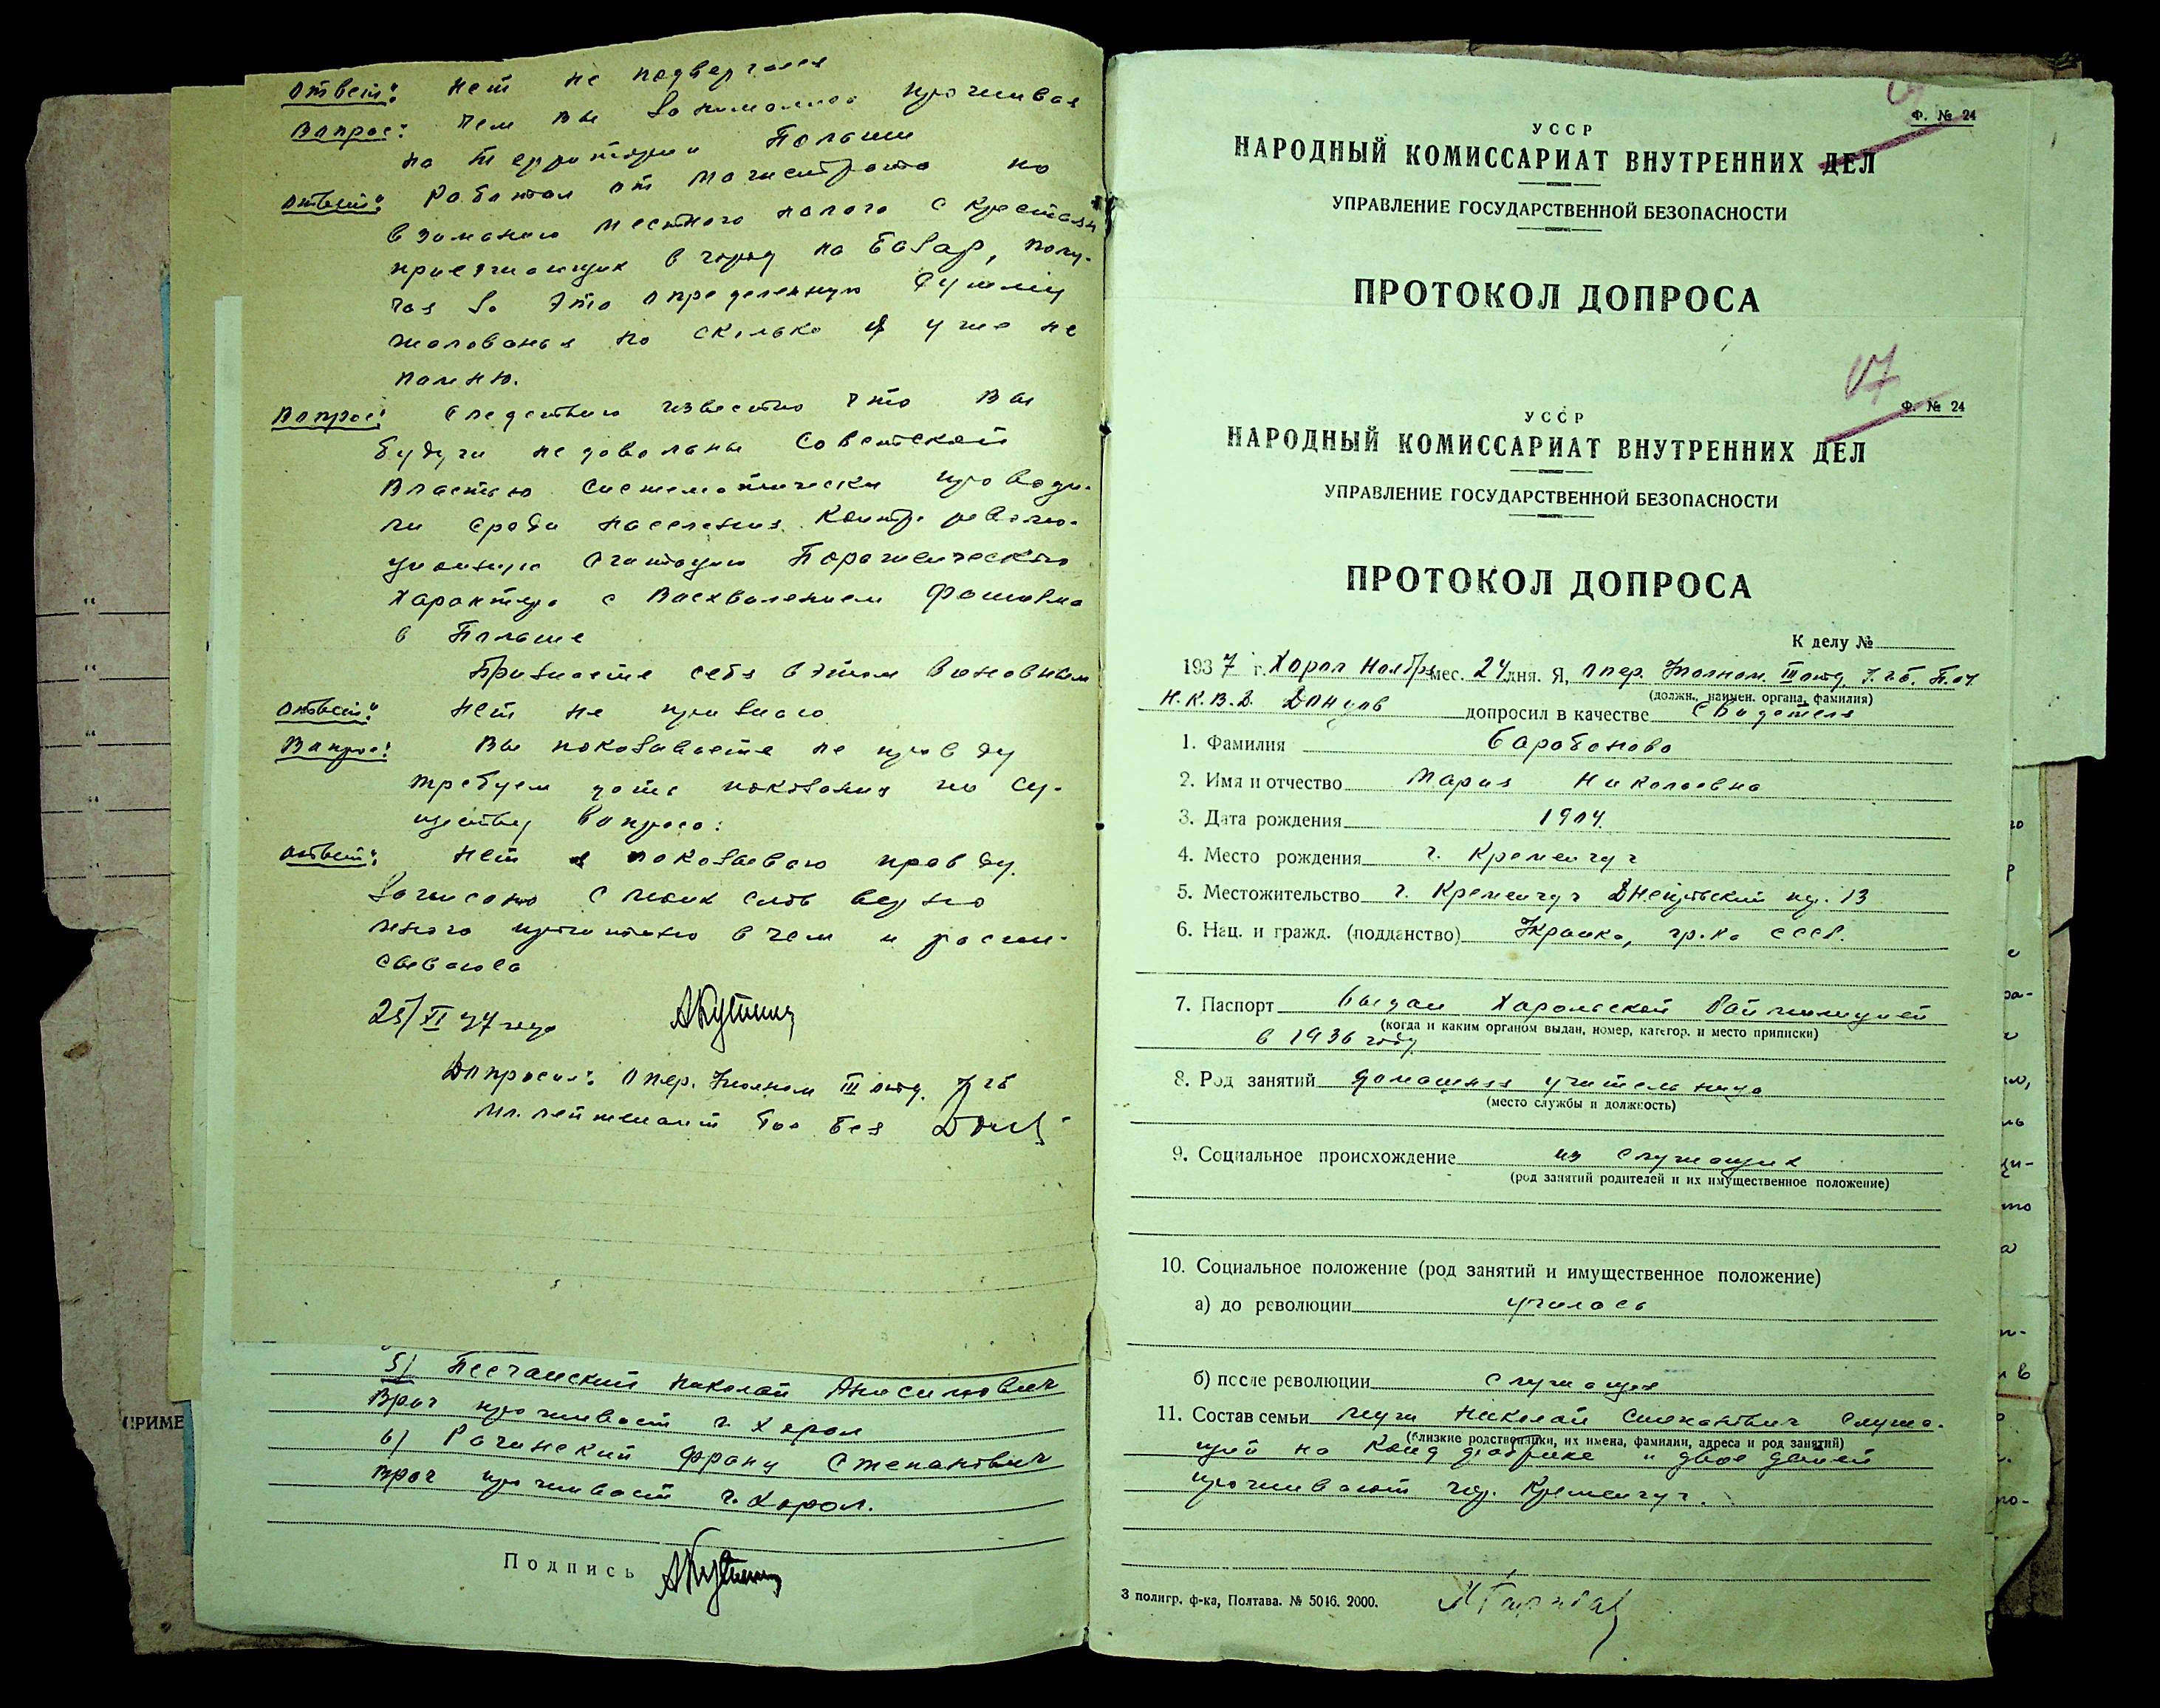 Ответ: Нет не подвергался
Вопрос: Чем вы занимались проживая
на территории Польши
Ответ: Работал от магистрата по
взиманию местного налога с крестьян
приезжающих в город на базар, полу-
чая за это определенную сумму
жалованья но сколько я уже не
помню.
Вопрос: Следствию известно что вы
будучи недовольны советской
властью систематически проводи-
ли среди населения контр револю-
ционную агитацию пораженческого
характера с восхвалением фашизма
в Польше
Признаете себя в этом виновным
Ответ: Нет не признаю
Вопрос: Вы показываете не правду
требуем дать показания по су-
ществу вопроса:
Ответ: Нет я показываю правду.
Записано с моих слов верно
мною прочитано в чем и распи-
сываюсь
25/XI 37 года
Допросил: Опер. Уполном III отд. УГБ
Мл. лейтенант Гос Без
5) Песчанский Николай
Врач проживает г. Хорол
6) Рачинский Франц Степанович
Врач проживает г. Хорол.
Подпись
ПРИМЕ
Ф. № 24
УССР
НАРОДНЫЙ КОМИССАРИАТ ВНУТРЕННИХ ДЕЛ
УПРАВЛЕНИЕ ГОСУДАРСТВЕННОЙ БЕЗОПАСНОСТИ
ПРОТОКОЛ ДОПРОСА
Ф. № 24
УССР
НАРОДНЫЙ КОМИССАРИАТ ВНУТРЕННИХ ДЕЛ
УПРАВЛЕНИЕ ГОСУДАРСТВЕННОЙ БЕЗОПАСНОСТИ
ПРОТОКОЛ ДОПРОСА
К делу №
1937 г. Хорол Ноябрь мес. 24 дня. Я, Опер. Уполном. III отд. У.Г.Б.
(должн., наимен. органа, фамилия)
Н.К.В.Д. допросил в качестве свидетеля
1. Фамилия Барабанова
2. Имя и отчество Мария Николаевна
3. Дата рождения 1904.
4. Место рождения г. Кременчуг
5. Местожительство г. Кременчуг 13
6. Нац. и гражд. (подданство) Украинка, гр-ка СССР.
7. Паспорт выдан Хорольской Рай милицией
(когда и каким органом выдан, номер, категор. и место приписки)
в 1936 году
8. Род занятий домашняя учительница
(место службы и должность)
9. Социальное происхождение из служащих
(род занятий родителей и их имущественное положение)
10. Социальное положение (род занятий и имущественное положение)
а) до революции училась
б) после революции служащая
11. Состав семьи муж Николай Степанович служа-
(близкие родственники, их имена, фамилии, адреса и род занятий)
щий на Конд фабрике и двое детей
проживают гор. Кременчуг.
3 полигр. ф-ка, Полтава. № 5016. 2000.